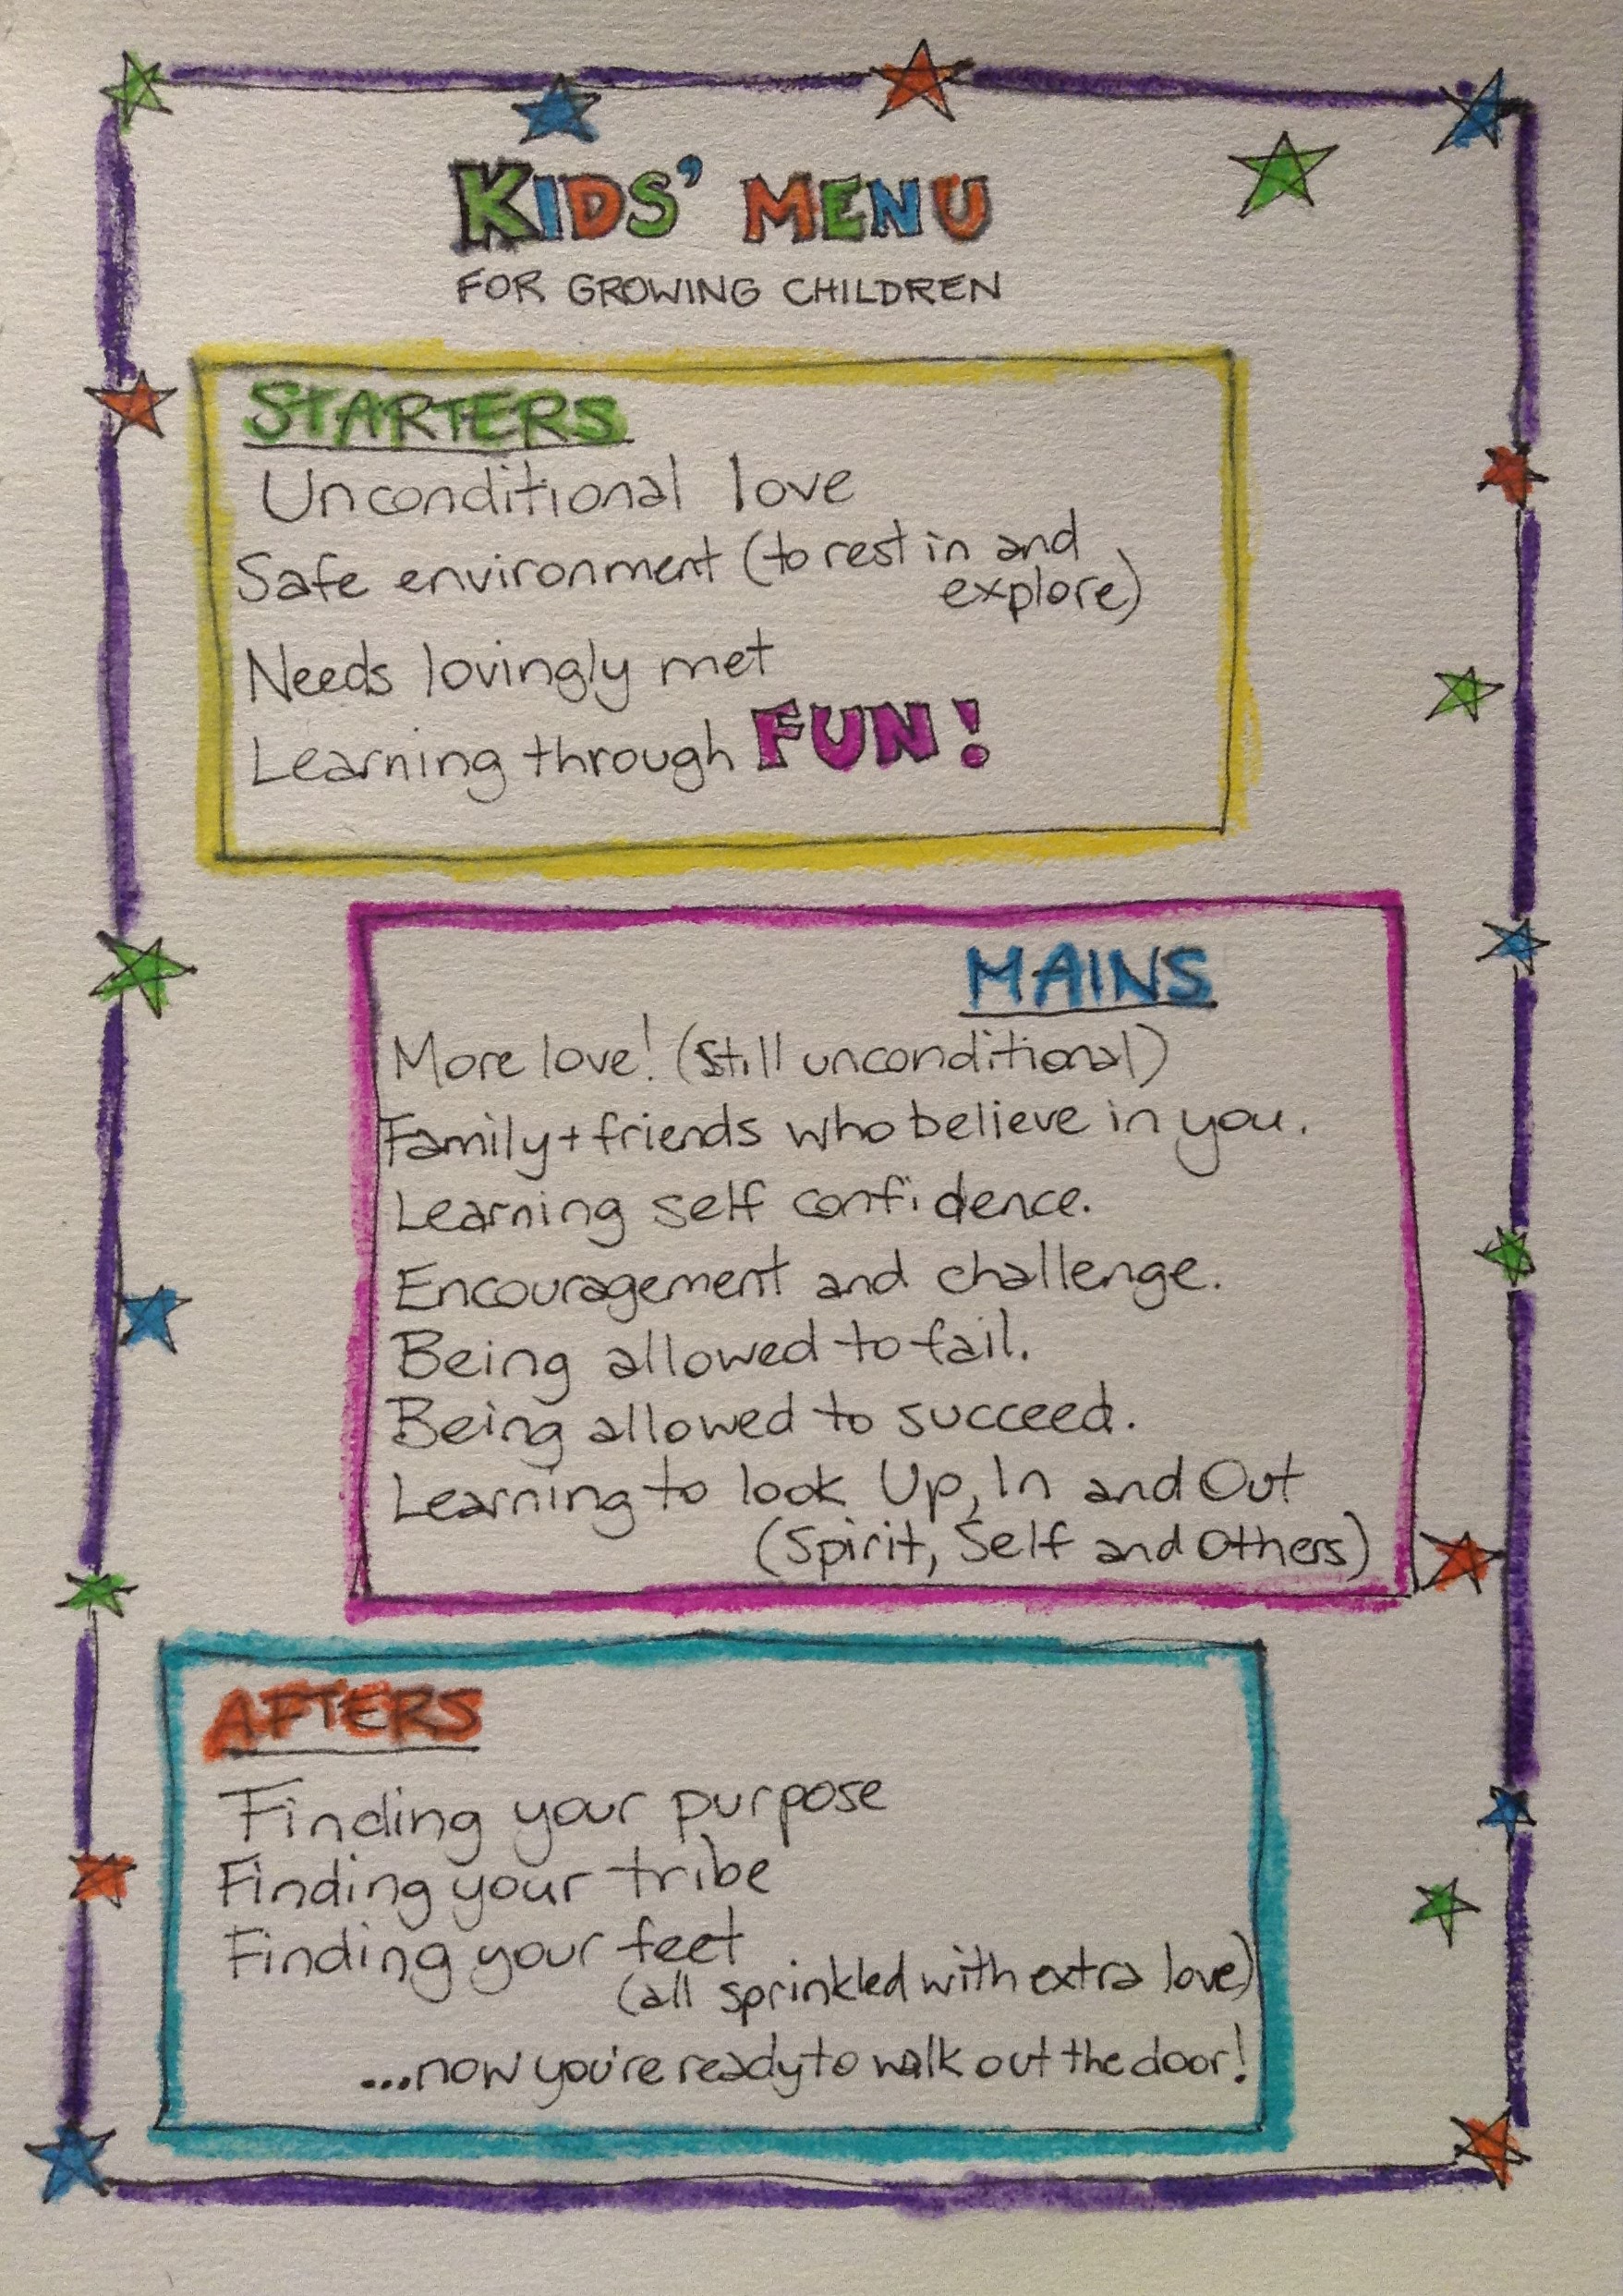 KIDS' MENU
FOR GROWING CHILDREN
STARTERS
Unconditional love
Safe environment (to rest in and
explore)
Needs lovingly met
Learning through FUN!
MAINS
More love! (still unconditional)
Family + friends who believe in you.
Learning self confidence.
Encouragement and challenge.
Being allowed to fail.
Being allowed to succeed.
Learning to look Up, In and Out
(Spirit, Self and Others)
AFTERS
Finding your purpose
Finding your tribe
Finding your feet
(all sprinkled with extra love)
...now you're ready to walk out the door!